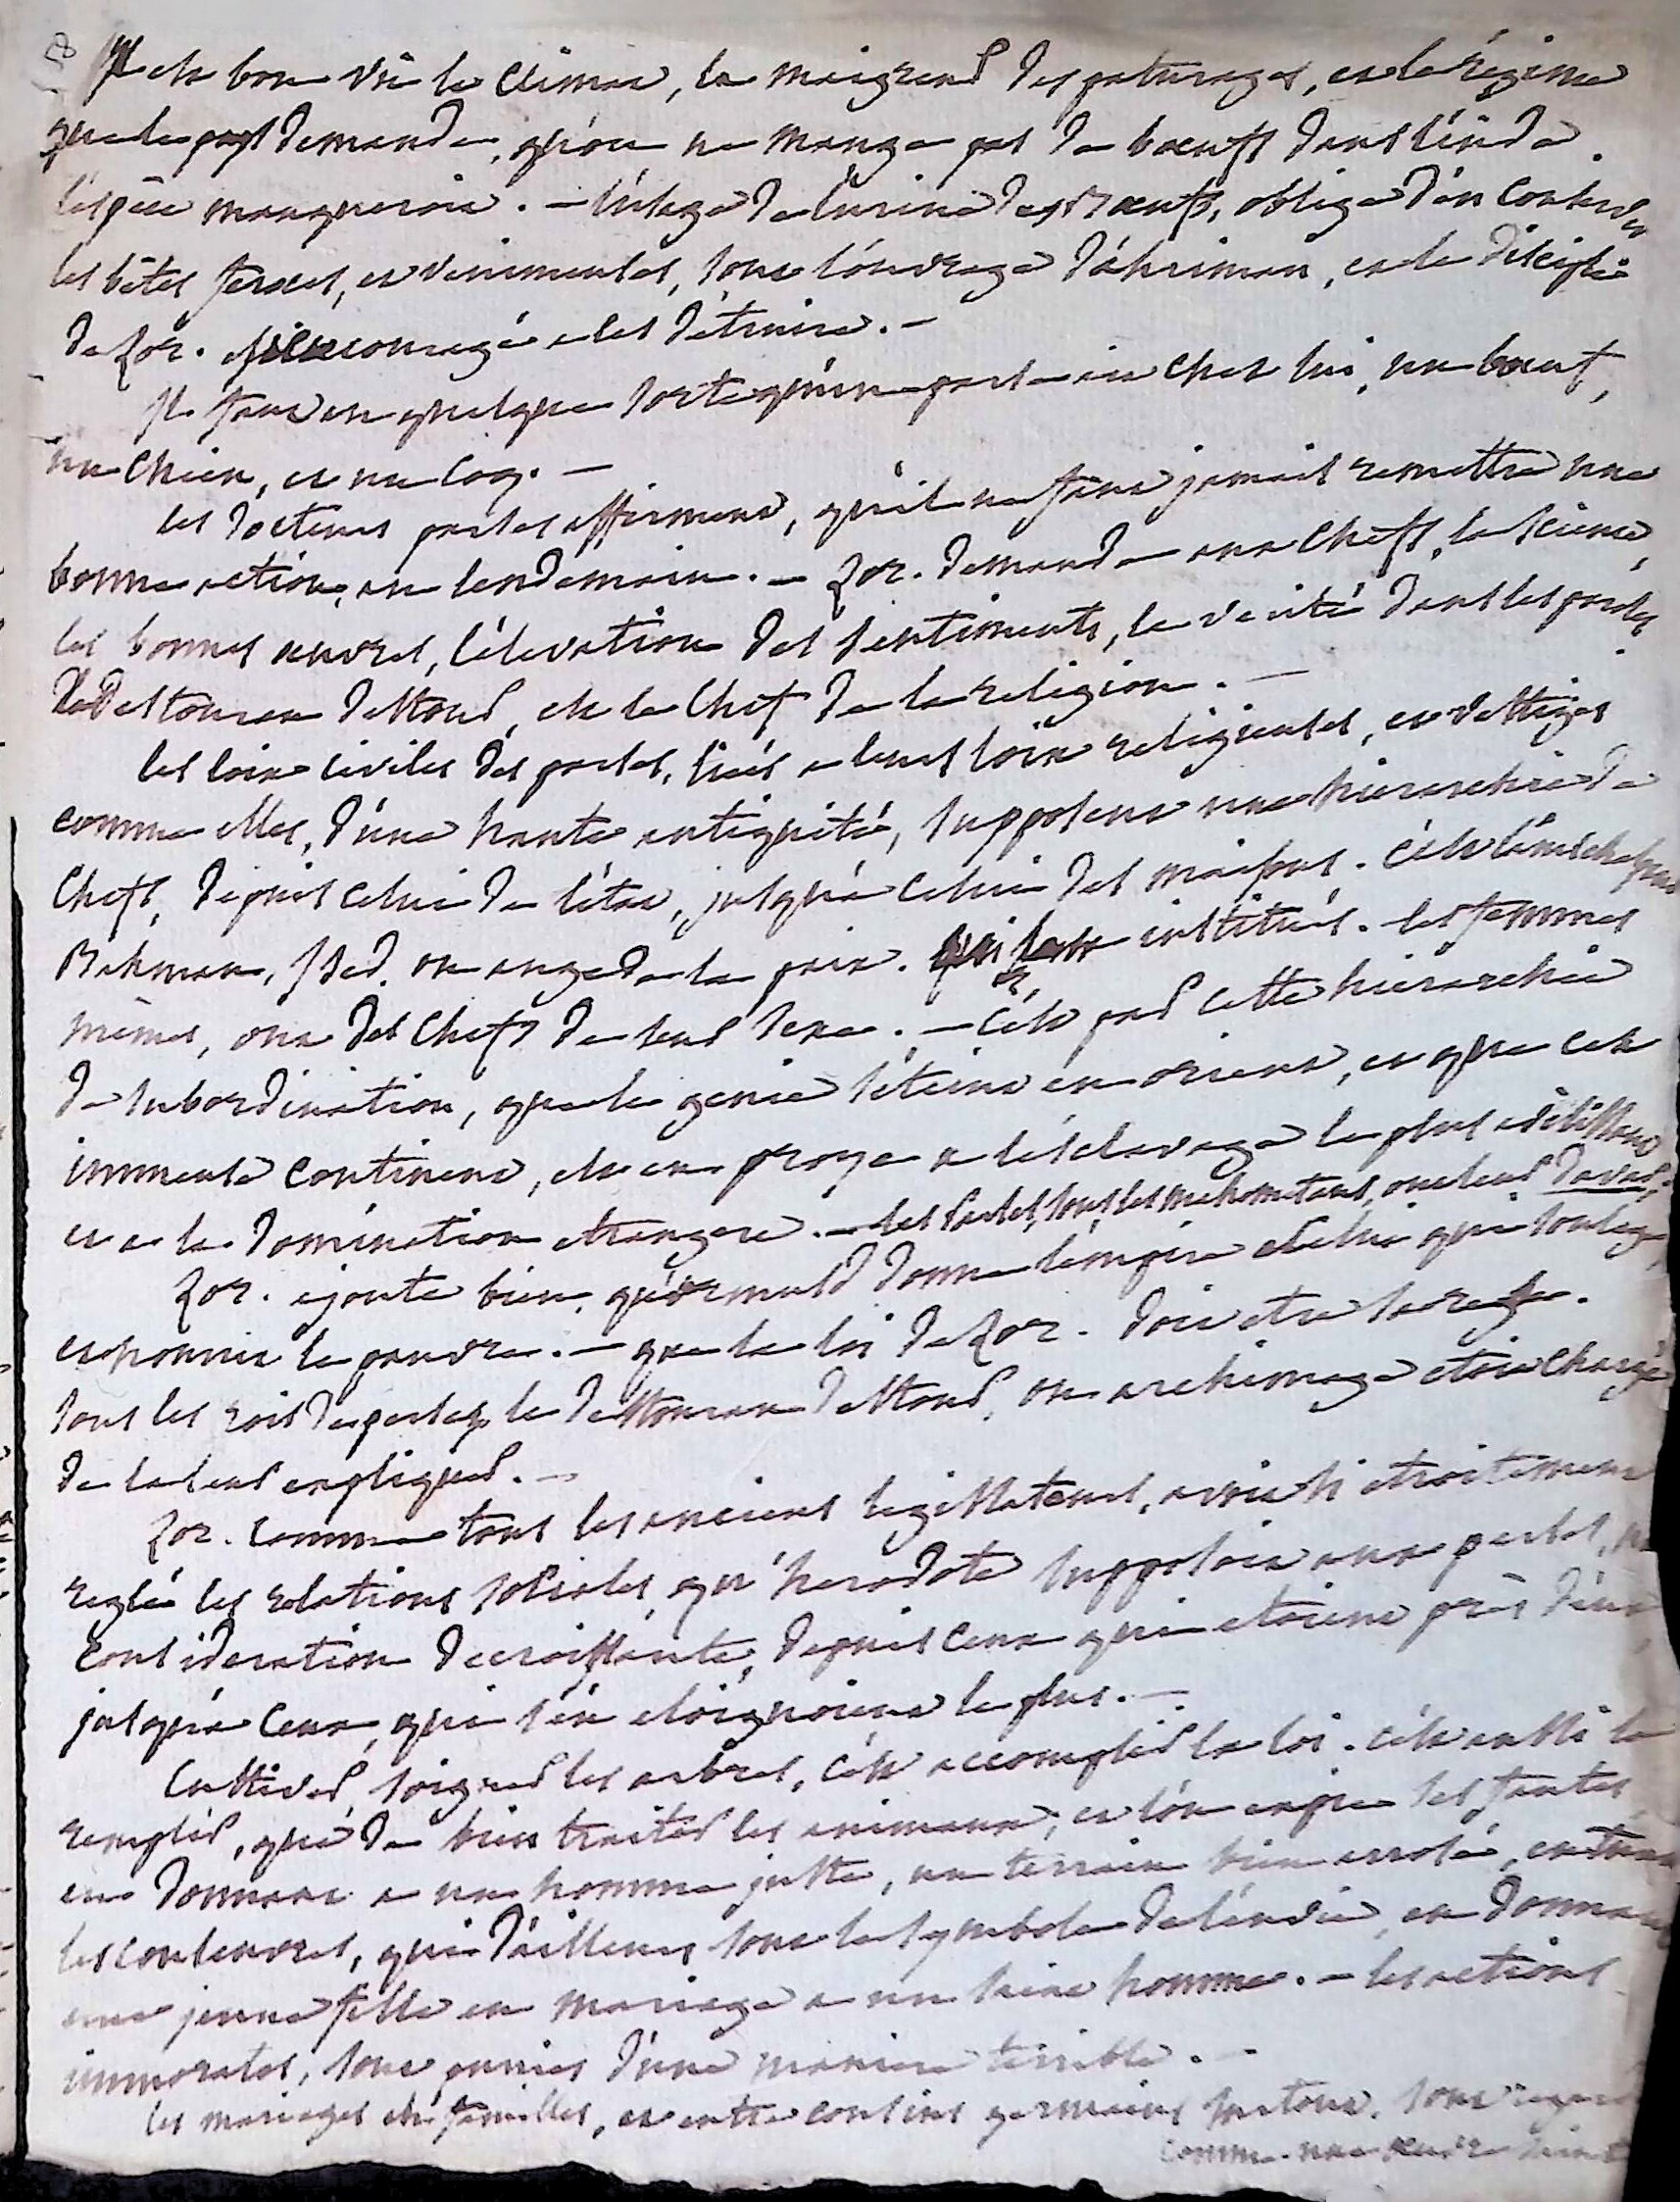 Il est bon vu le climat, la maigreur des paturages, et le régime
que le pays demande, qu'on ne mange pas de boeufs dans l'inde.
l'espèce manqueroit. — l'usage de l'urine des boeufs, oblige d'en conserver
les bêtes feroces, et venimeuses, sont l'ouvrage d'ahriman, et le disciple
de Zor. est encouragé a les détruire. —
Il faut en quelque sorte qu'un parse ait chez lui, un boeuf,
un chien, et un coq. —
les docteurs parses affirment, qu'il ne faut jamais remettre une
bonne action, au lendemain. — Zor. demande aux chefs, la science,
les bonnes oeuvres, l'élevation des sentiments, la verité dans les paroles.
le destouran destour, est le chef de la religion. —
les loix civiles des parses, liées a leurs loix religieuses, et vestiges
comme elles, d'une haute antiquité, supposent une hierarchie de
chefs, depuis celui de l'état, jusqu'à celui des maisons. c'est l'amschaspand
Bahman, Ized. ou ange de la paix. institués. les femmes
mêmes, ont des chefs de leur sexe. — c'est par cette hierarchie
de subordination, que le genie s'éteint en orient, et que cet
immense continent, est en proye a l'esclavage le plus avilissant
et a la domination etrangere. — les parses, sous les mahometans, ont leur
Zor. ajoute bien, qu'ormusd donne l'empire a celui qui soulage,
et nourrit le pauvre. — que la loi de Zor. doit etre sa regle.
sous les rois de perse, le destouran destour, ou archimage etoit chargé
de la leur expliquer. —
Zor. comme tous les anciens legislateurs, avoit si etroitement
reglé les relations sociales, qu'herodote supposoit aux perses, une
consideration decroissante, depuis ceux qui etoient près d'eux,
jusqu'à ceux, qui s'en eloignoient le plus. —
Cultiver, soigner les arbres, c'est accomplir la loi. c'est aussi la
remplir, que de bien traiter les animaux, et l'on expie ses fautes,
en donnant a un homme juste, un terrain bien arrosé, en tuant
les couleuvres, qui d'ailleurs sont le symbole de l'envie, en donnant
une jeune fille en mariage a un saint homme. — les actions
immorales, sont punies d'une maniere terrible. —
les mariages en familles, et entre cousins germains surtout, sont regardés
comme une oeuvre